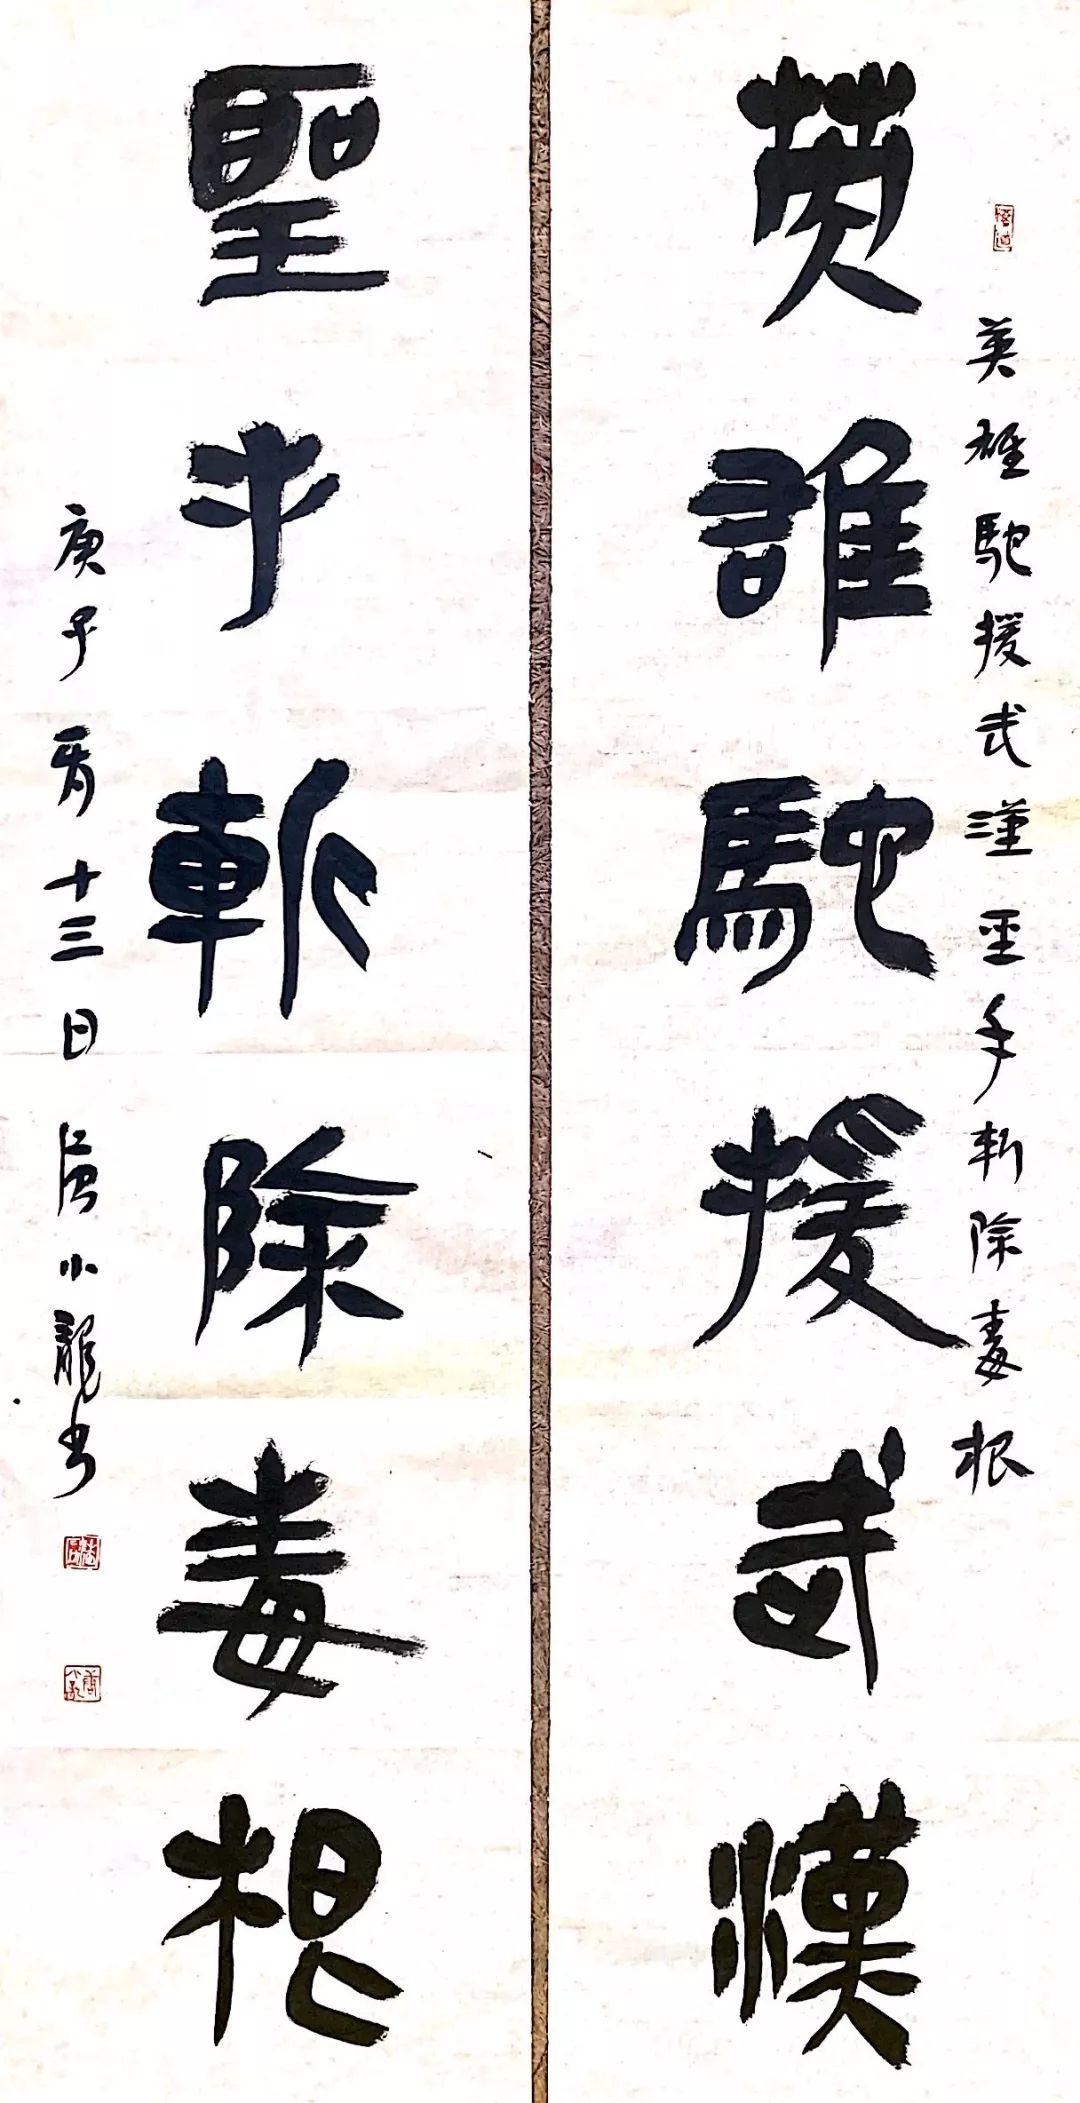 英雄馳援武漢聖手斬除毒根
英誰馳援武漢
聖手斬除毒根
庚子正月十三日唐小龍書